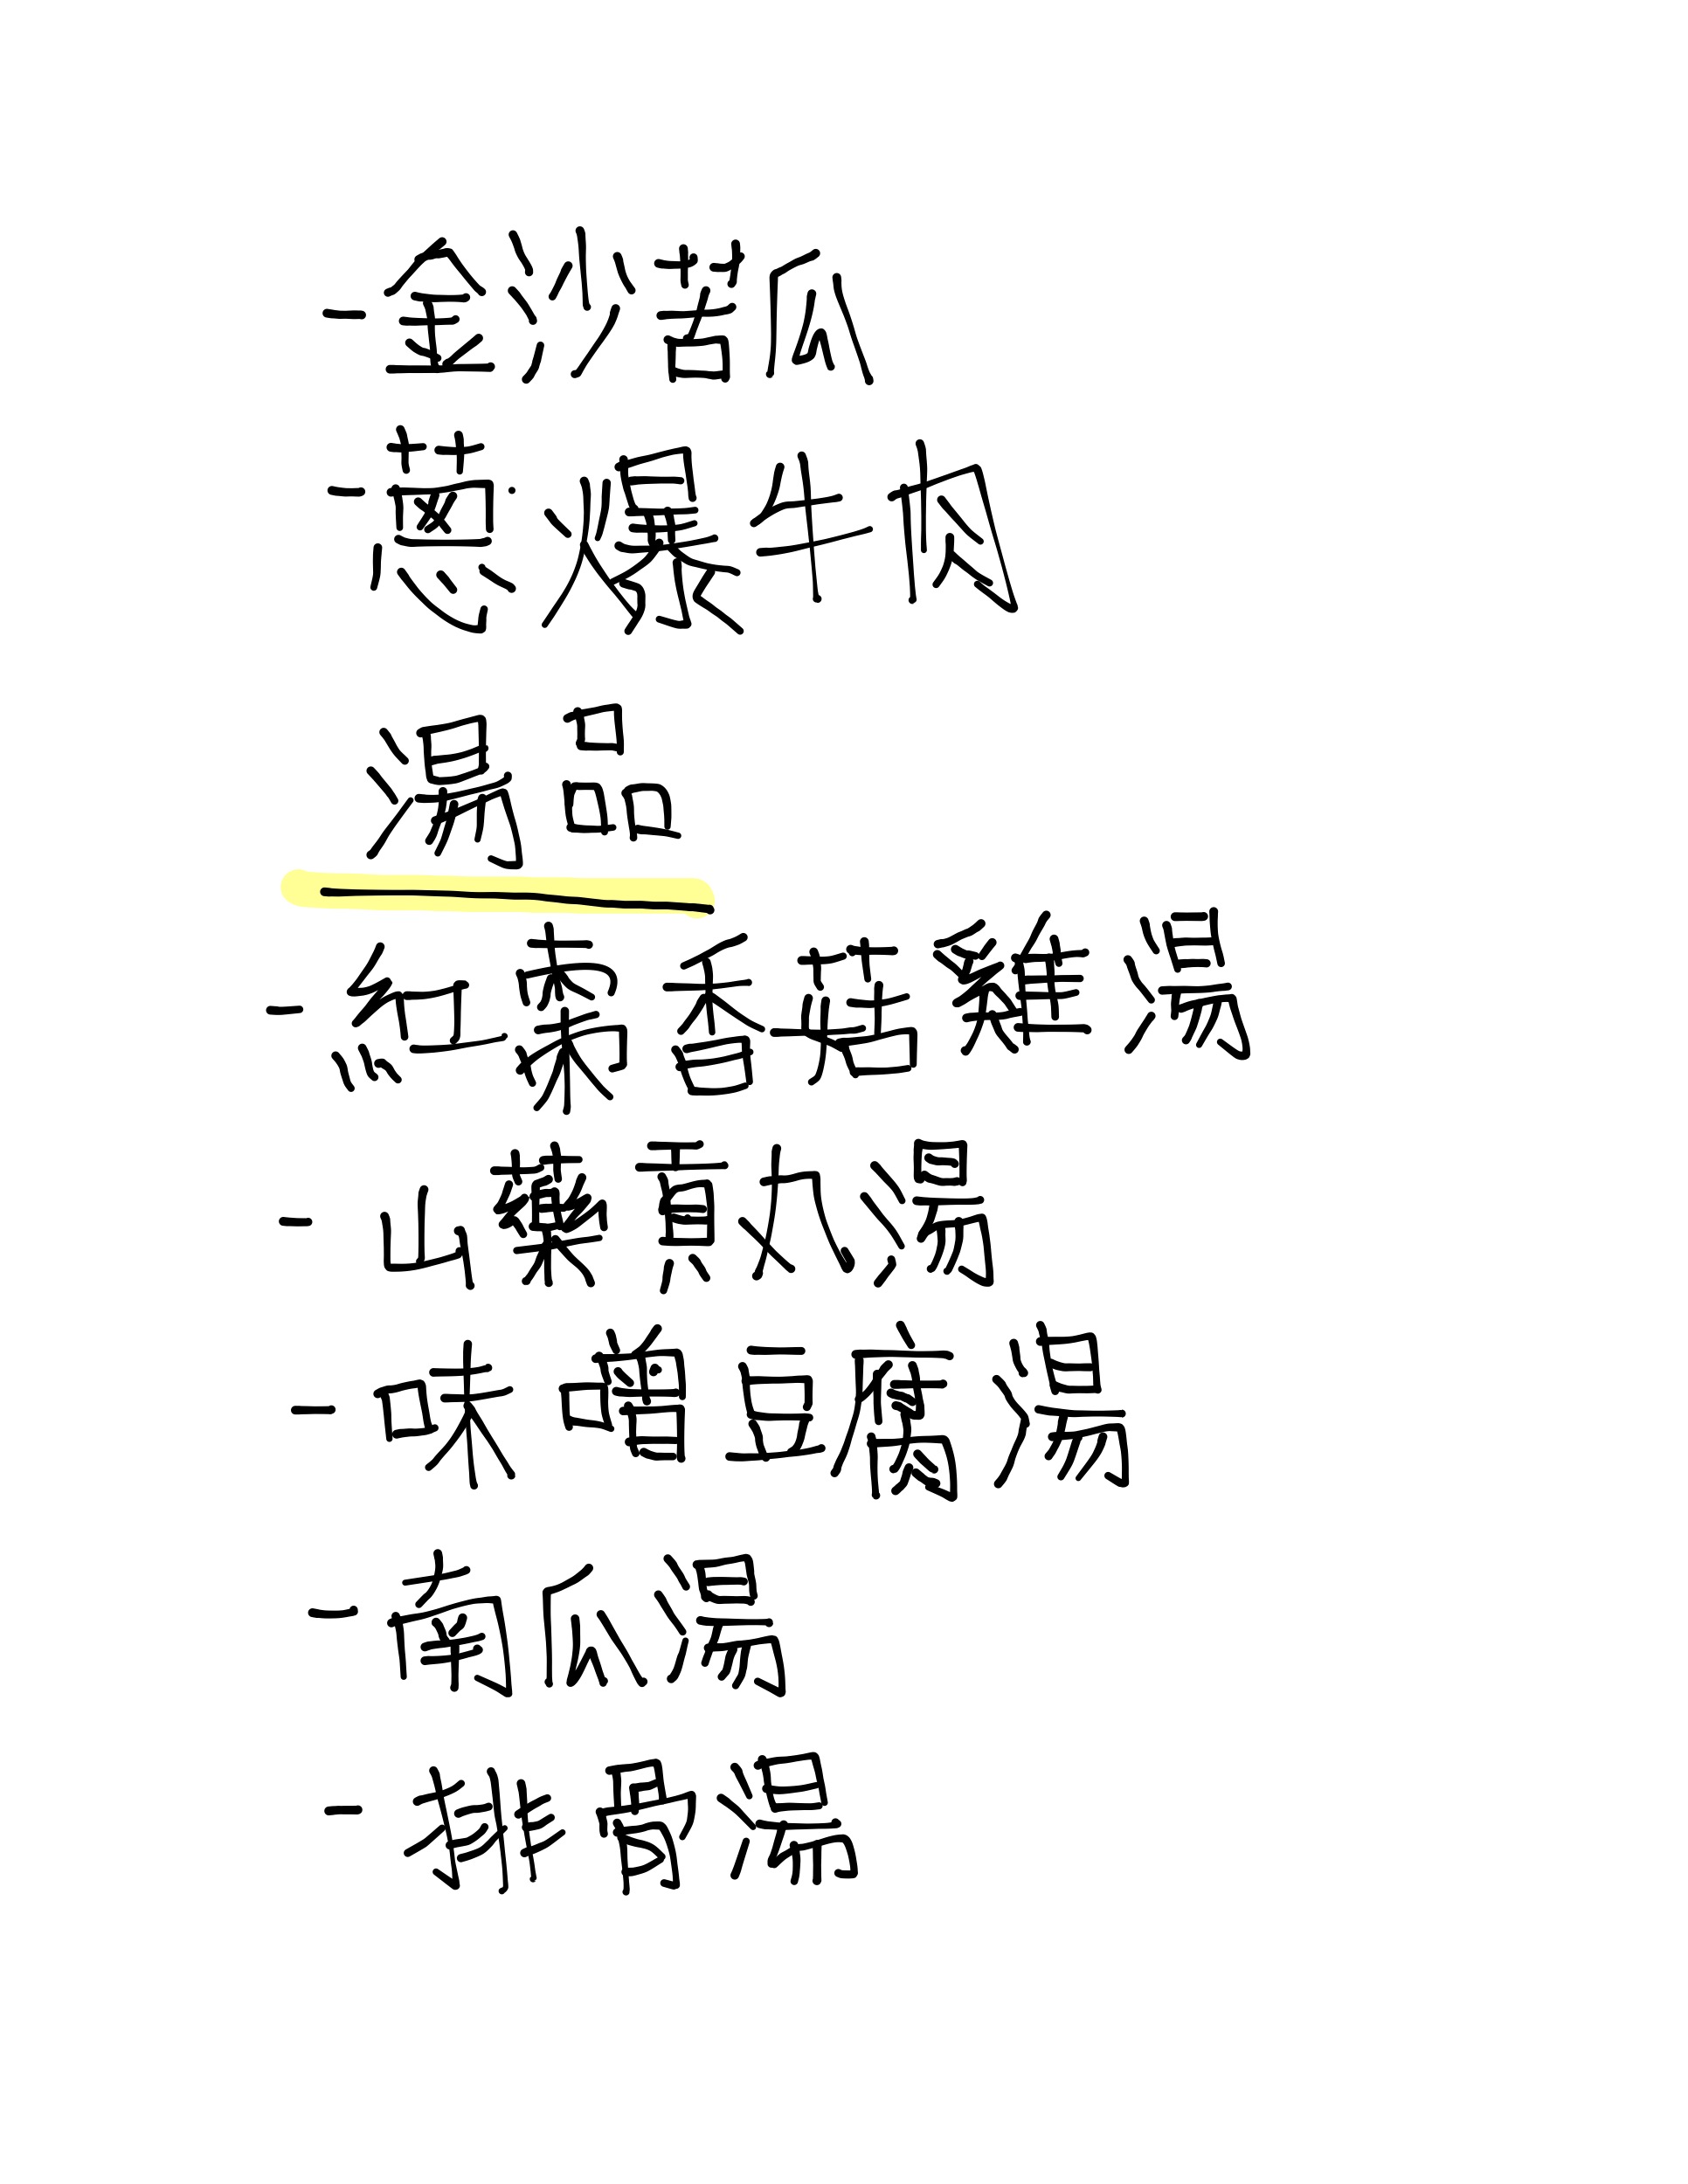 - 金沙苦瓜
- 蔥爆牛肉
湯品
- 紅棗香菇雞湯
- 山藥貢丸湯
- 味噌豆腐湯
- 南瓜湯
- 排骨湯